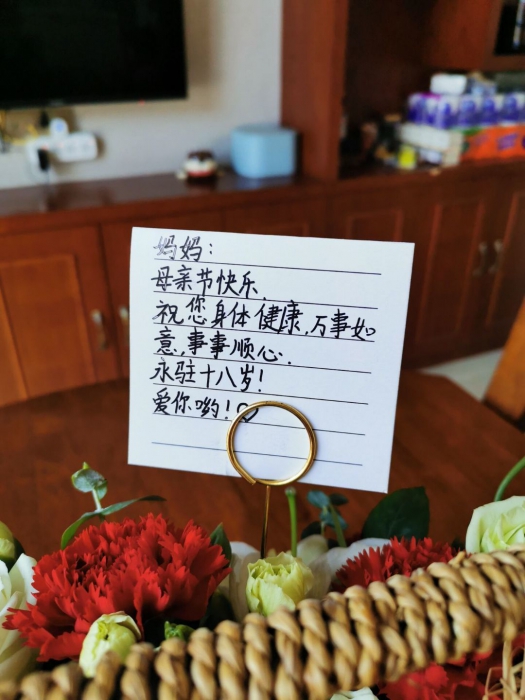 妈妈：
母亲节快乐，
祝您身体健康，万事如
意，事事顺心．
永驻十八岁！
爱你哟！♡